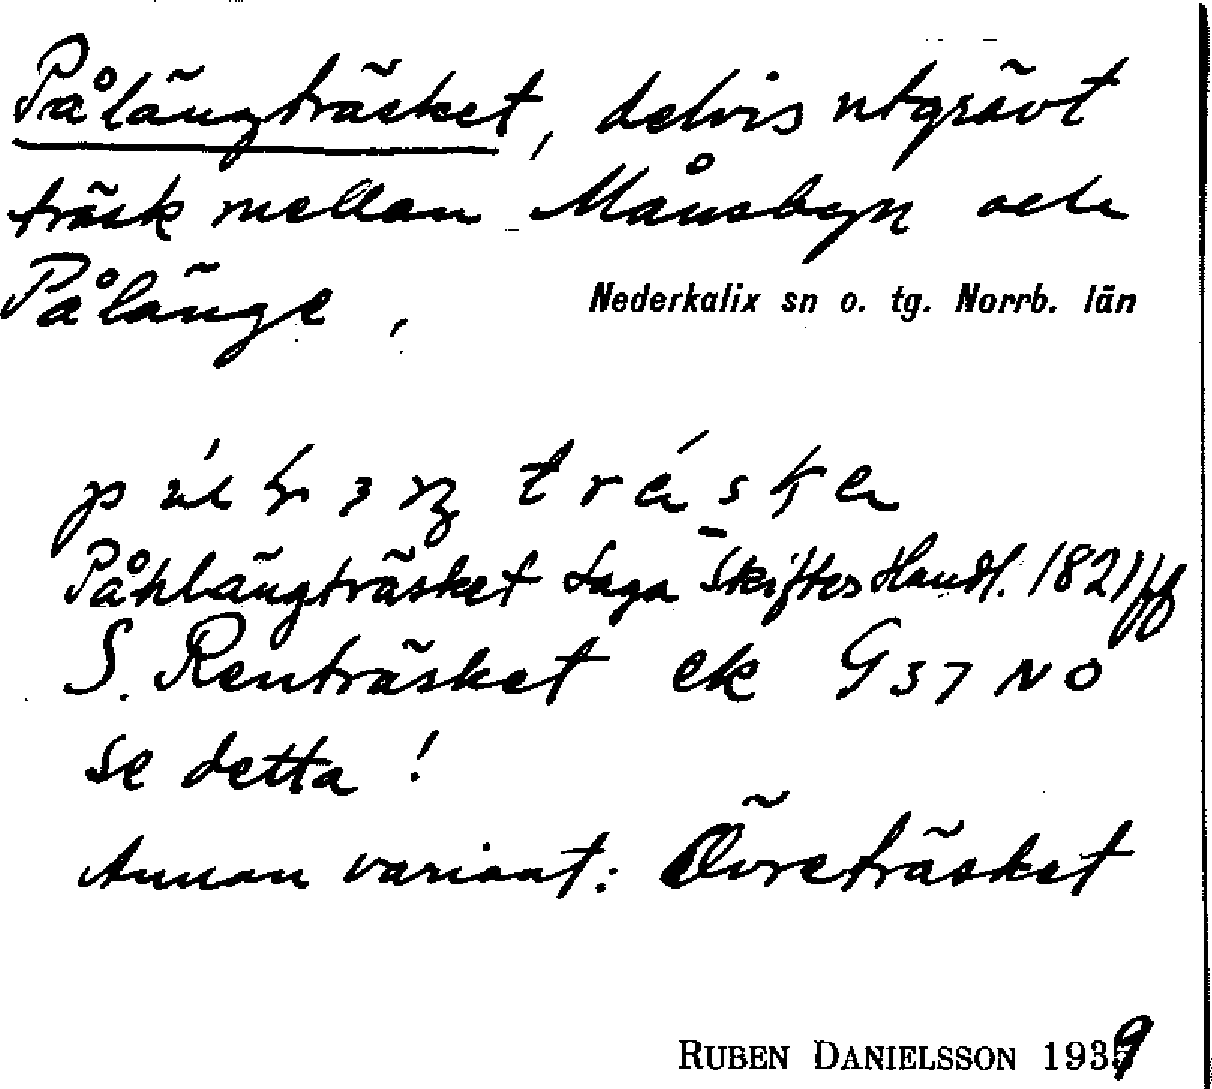 Pålängträsket, delvis utgrävt
träsk mellan Månsbyn och
Pålänge,
Nederkalix sn o. tg. Norrb. län
Påhlängträsket Laga Skiftes Handl. 1821 ff
S. Renträsket ek G 37 NO
se detta!
Annan variant: Övreträsket
RUBEN DANIELSSON 1939